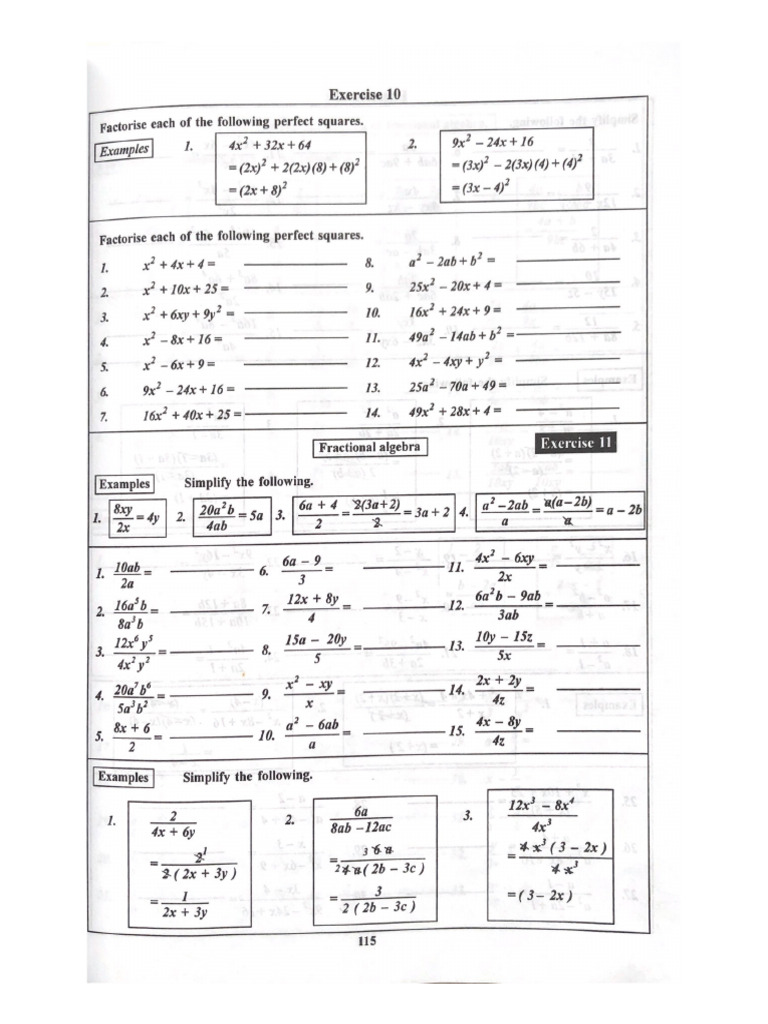 Exercise 10
Factorise each of the following perfect squares.
Examples
1. 4x² + 32x + 64
= (2x)² + 2(2x)(8) + (8)²
= (2x + 8)²
2. 9x² − 24x + 16
= (3x)² − 2(3x)(4) + (4)²
= (3x − 4)²
Factorise each of the following perfect squares.
1. x² + 4x + 4 =
2. x² + 10x + 25 =
3. x² + 6xy + 9y² =
4. x² − 8x + 16 =
5. x² − 6x + 9 =
6. 9x² − 24x + 16 =
7. 16x² + 40x + 25 =
8. a² − 2ab + b² =
9. 25x² − 20x + 4 =
10. 16x² + 24x + 9 =
11. 49a² − 14ab + b² =
12. 4x² − 4xy + y² =
13. 25a² − 70a + 49 =
14. 49x² + 28x + 4 =
Fractional algebra
Exercise 11
Examples Simplify the following.
1. 8xy/2x = 4y
2. 20a²b/4ab = 5a
3. 6a + 4/2 = 2(3a+2)/2 = 3a + 2
4. a² − 2ab/a = a(a − 2b)/a = a − 2b
1. 10ab/2a =
2. 16a⁵b/8a³b =
3. 12x⁶y⁵/4x²y² =
4. 20a⁷b⁶/5a³b² =
5. 8x + 6/2 =
6. 6a − 9/3 =
7. 12x + 8y/4 =
8. 15a − 20y/5 =
9. x² − xy/x =
10. a² − 6ab/a =
11. 4x² − 6xy/2x =
12. 6a²b − 9ab/3ab =
13. 10y − 15z/5x =
14. 2x + 2y/4z =
15. 4x − 8y/4z =
Examples Simplify the following.
1. 2/4x + 6y
= 2 1/2 ( 2x + 3y )
= 1/2x + 3y
2. 6a/8ab − 12ac
= 3 6 a/2 4 a ( 2b − 3c )
= 3/2 ( 2b − 3c )
3. 12x³ − 8x⁴/4x³
= 4 x³ ( 3 − 2x )/4 x³
= ( 3 − 2x )
115